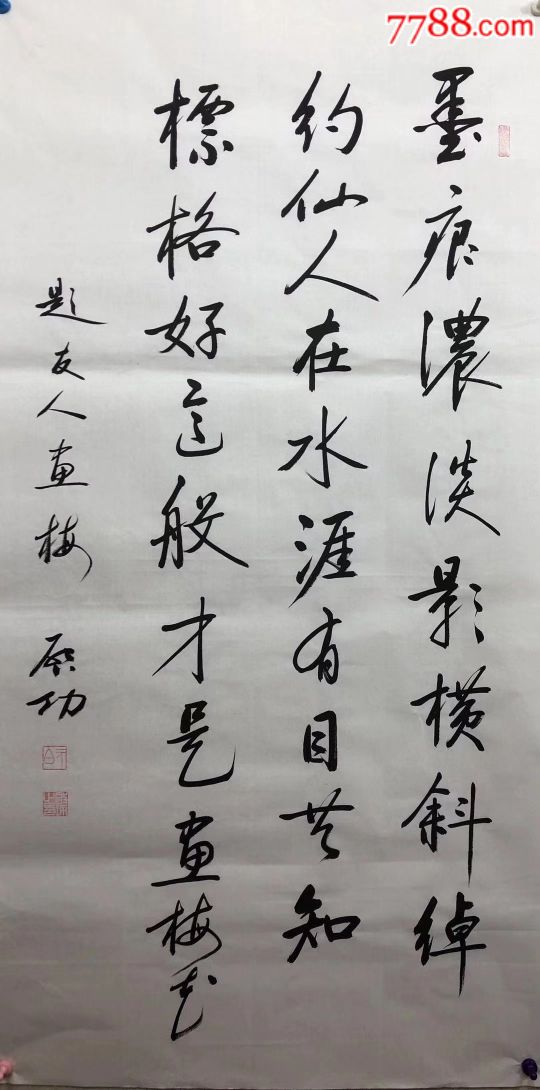 7788.com
墨痕濃淡影橫斜綽
約仙人在水涯有目共知
標格好這般才是畫梅花
題友人畫梅 啟功